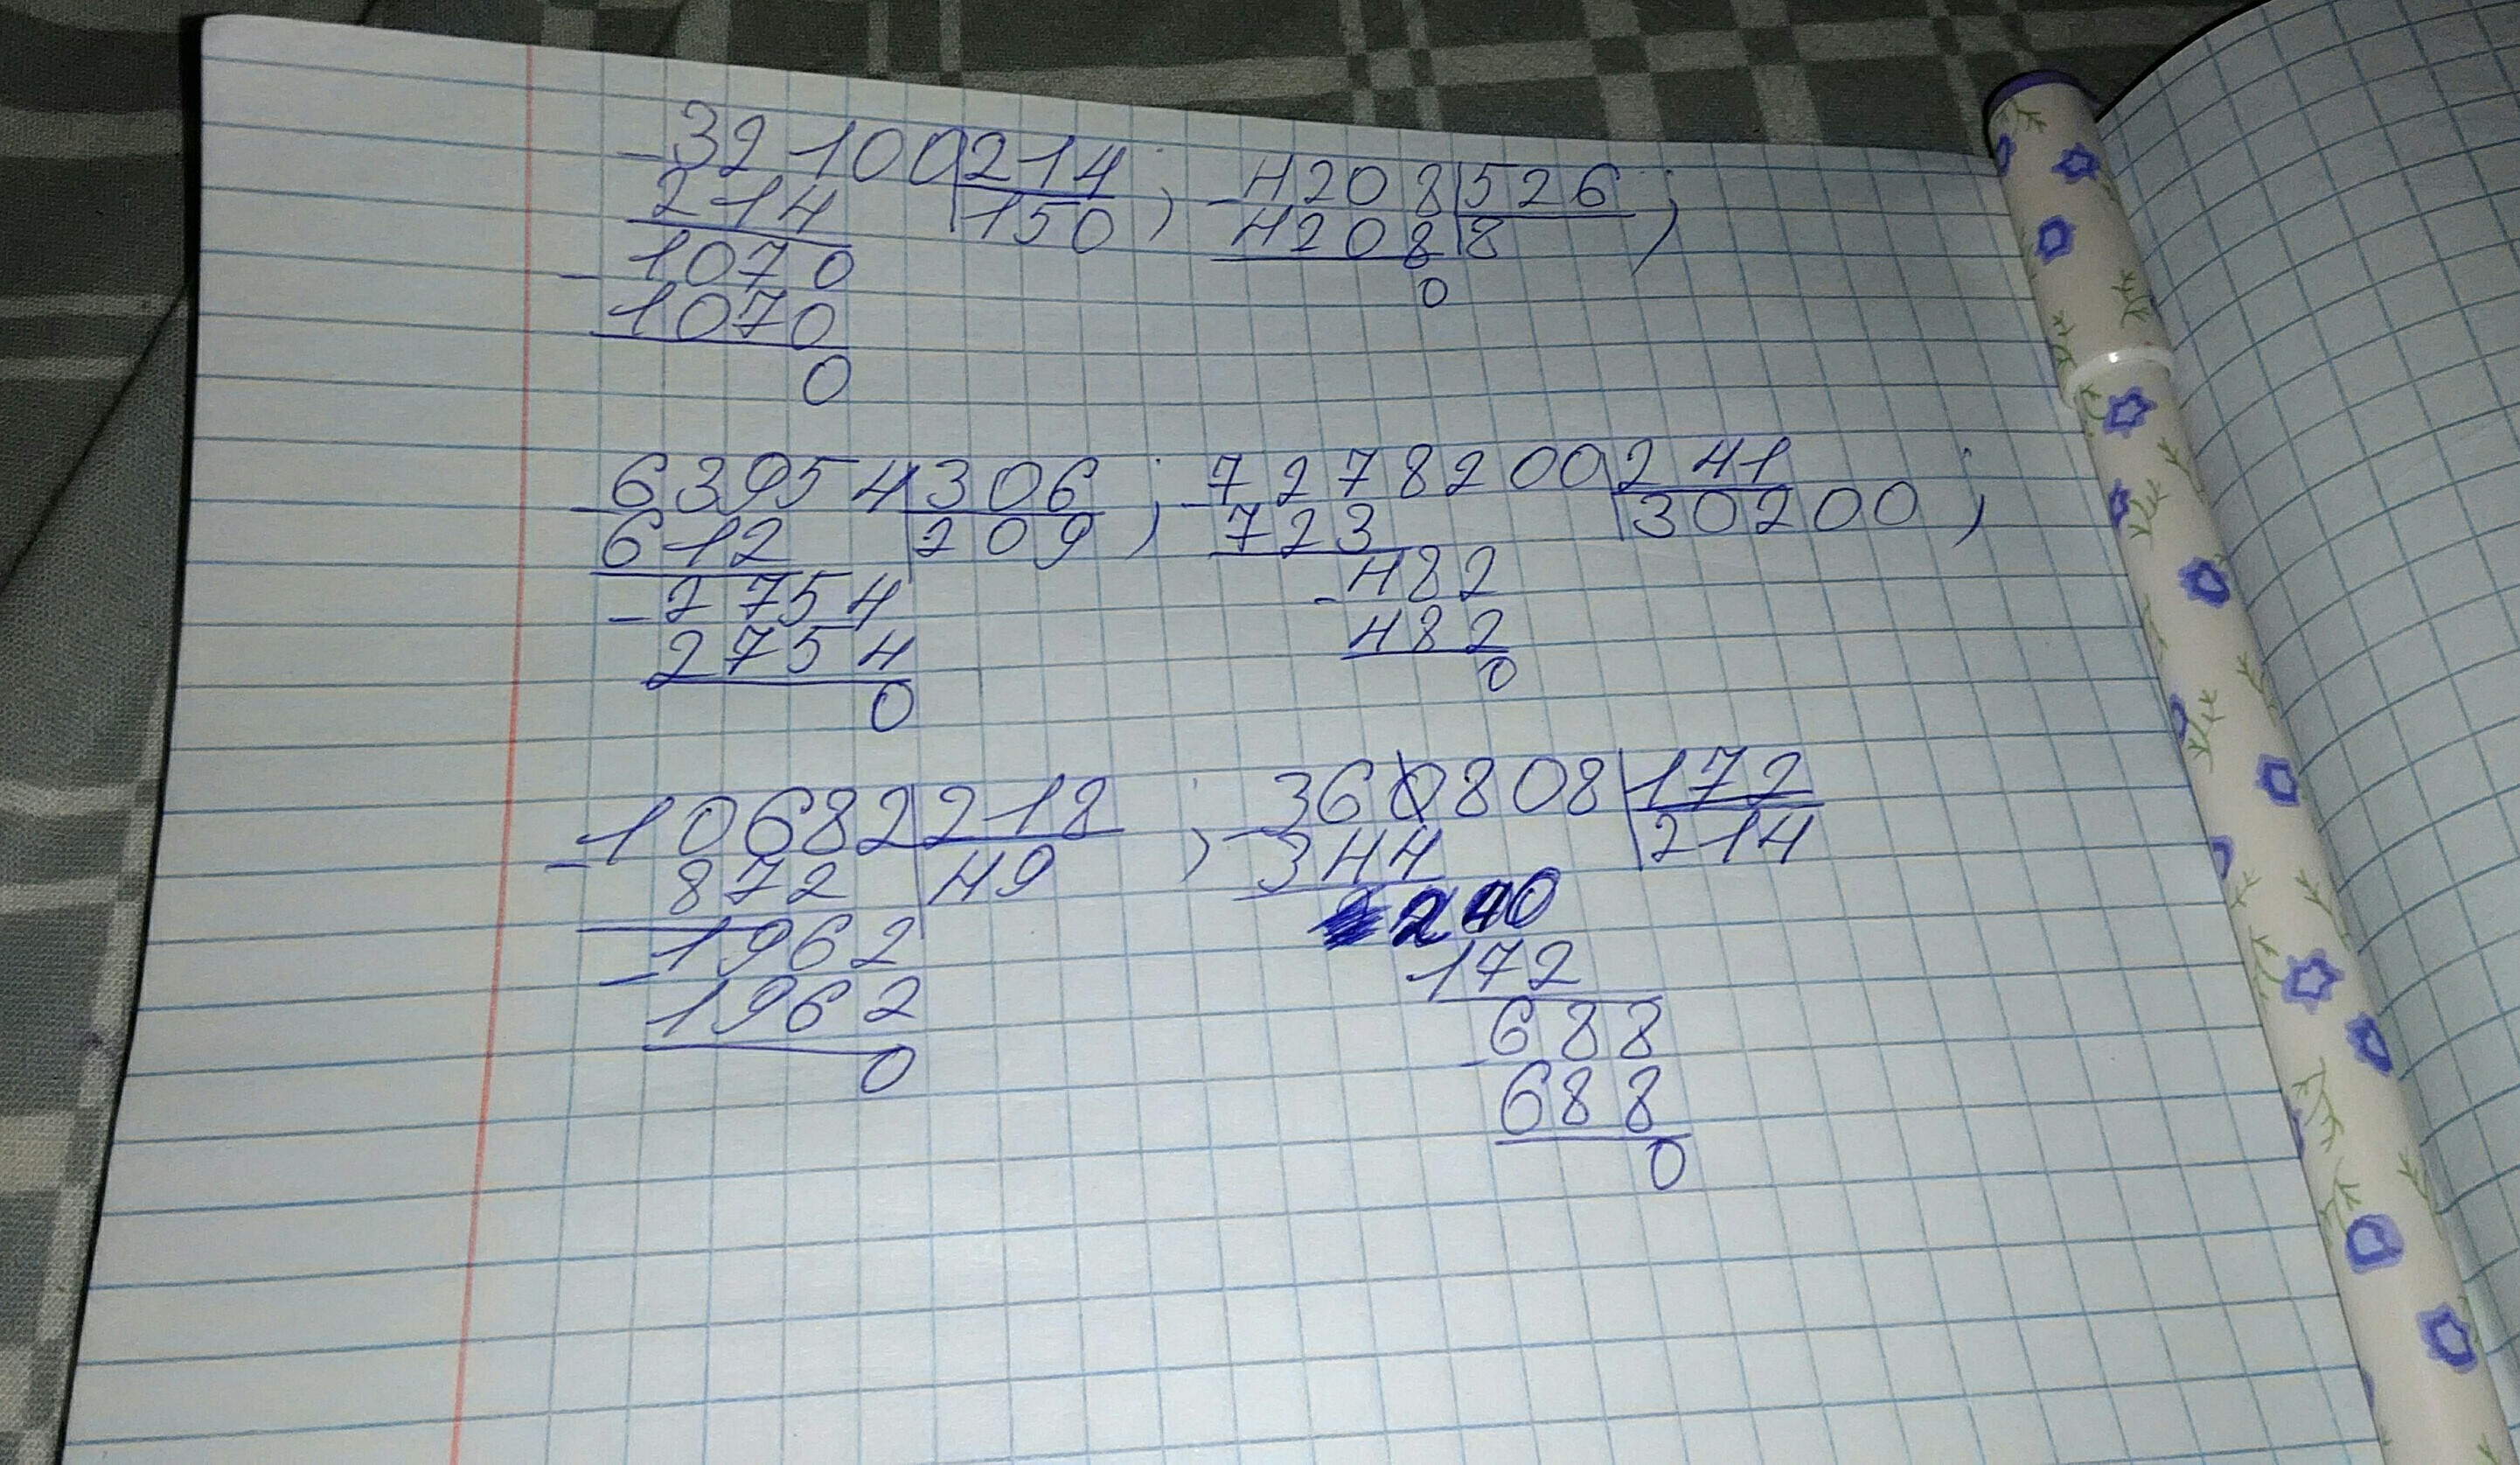 -32100|214 ; -4208|526 ;
214 |150 4208|8
-1070 0
1070
0
-63954|306 ; -7278200|241 ;
612 |209 723 |30200
-2754 -482
2754 482
0 0
-10682|218 ; -360808|172
872 |49 344 |214
-1962 240
1962 172
0 688
-688
0